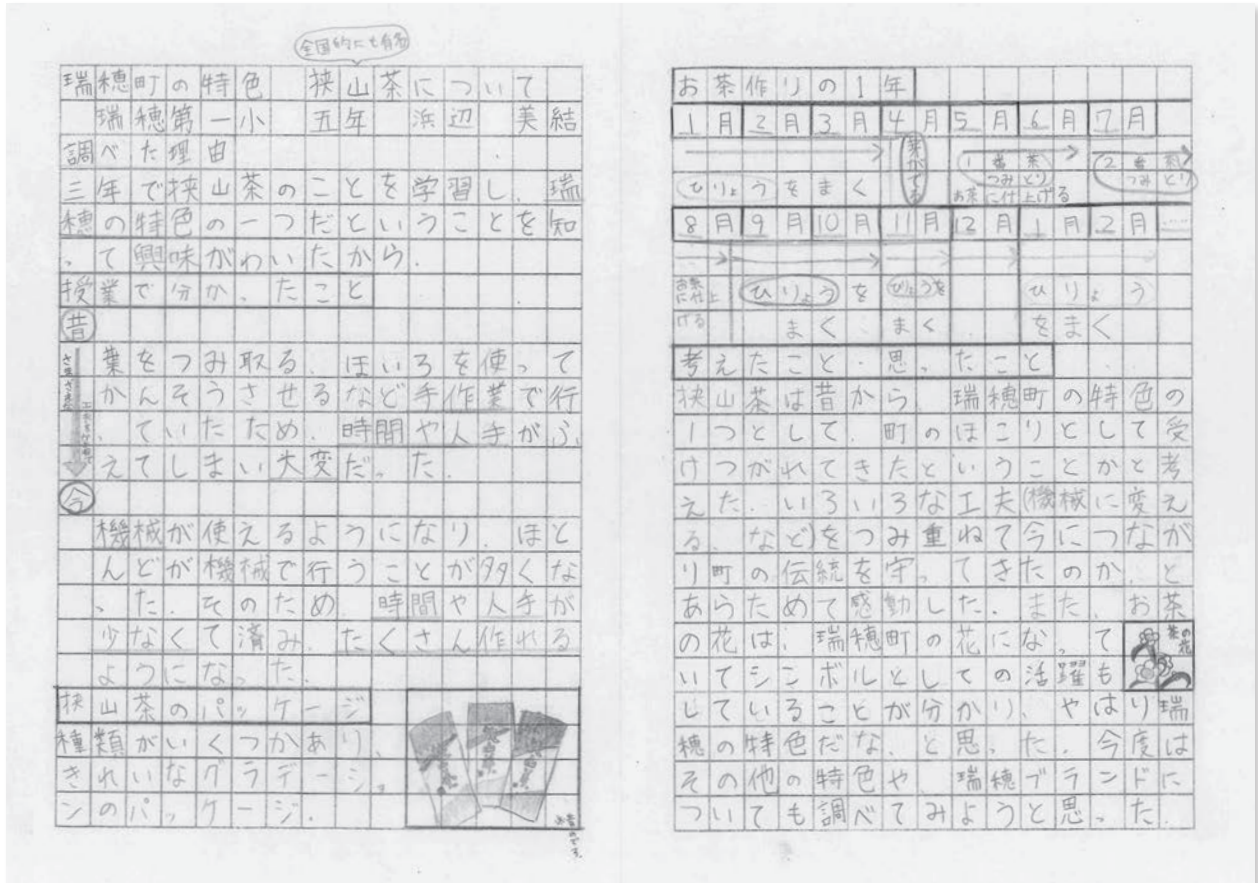 全国的にも有名
瑞穂町の特色 狭山茶について
瑞穂第一小 五年 浜辺 美結
調べた理由
三年で狭山茶のことを学習し、瑞
穂の特色の一つだということを知
って興味がわいたから。
授業で分かったこと
昔
葉をつみ取る、ほいろを使って
かんそうさせるなど手作業で行
っていたため、時間や人手がふ
えてしまい大変だった。
さまざまな
今
機械が使えるようになり、ほと
んどが機械で行うことが多くな
った。そのため、時間や人手が
少なくて済み、たくさん作れる
ようになった。
狭山茶のパッケージ
種類がいくつかあり、
きれいなグラデーショ
ンのパッケージ。
お茶作りの1年
1月2月3月4月5月6月7月
葉がでる
1番茶
つみとり
2番茶
つみとり
ひりょうをまく
お茶に仕上げる
8月9月10月11月12月1月2月……
お茶
に仕上
げる
ひりょうを
まく
ひりょうを
まく
ひりょう
をまく
考えたこと・思ったこと
狭山茶は昔から、瑞穂町の特色の
1つとして、町のほこりとして受
けつがれてきたということかと考
えた。いろいろな工夫(機械に変え
る、など)をつみ重ねて今につなが
り町の伝統を守ってきたのか、と
あらためて感動した。また、お茶
の花は、瑞穂町の花になって
いてシンボルとしての活躍も
していることが分かり、やはり瑞
穂の特色だな、と思った。今度は
その他の特色や、瑞穂ブランドに
ついても調べてみようと思った。
茶の花